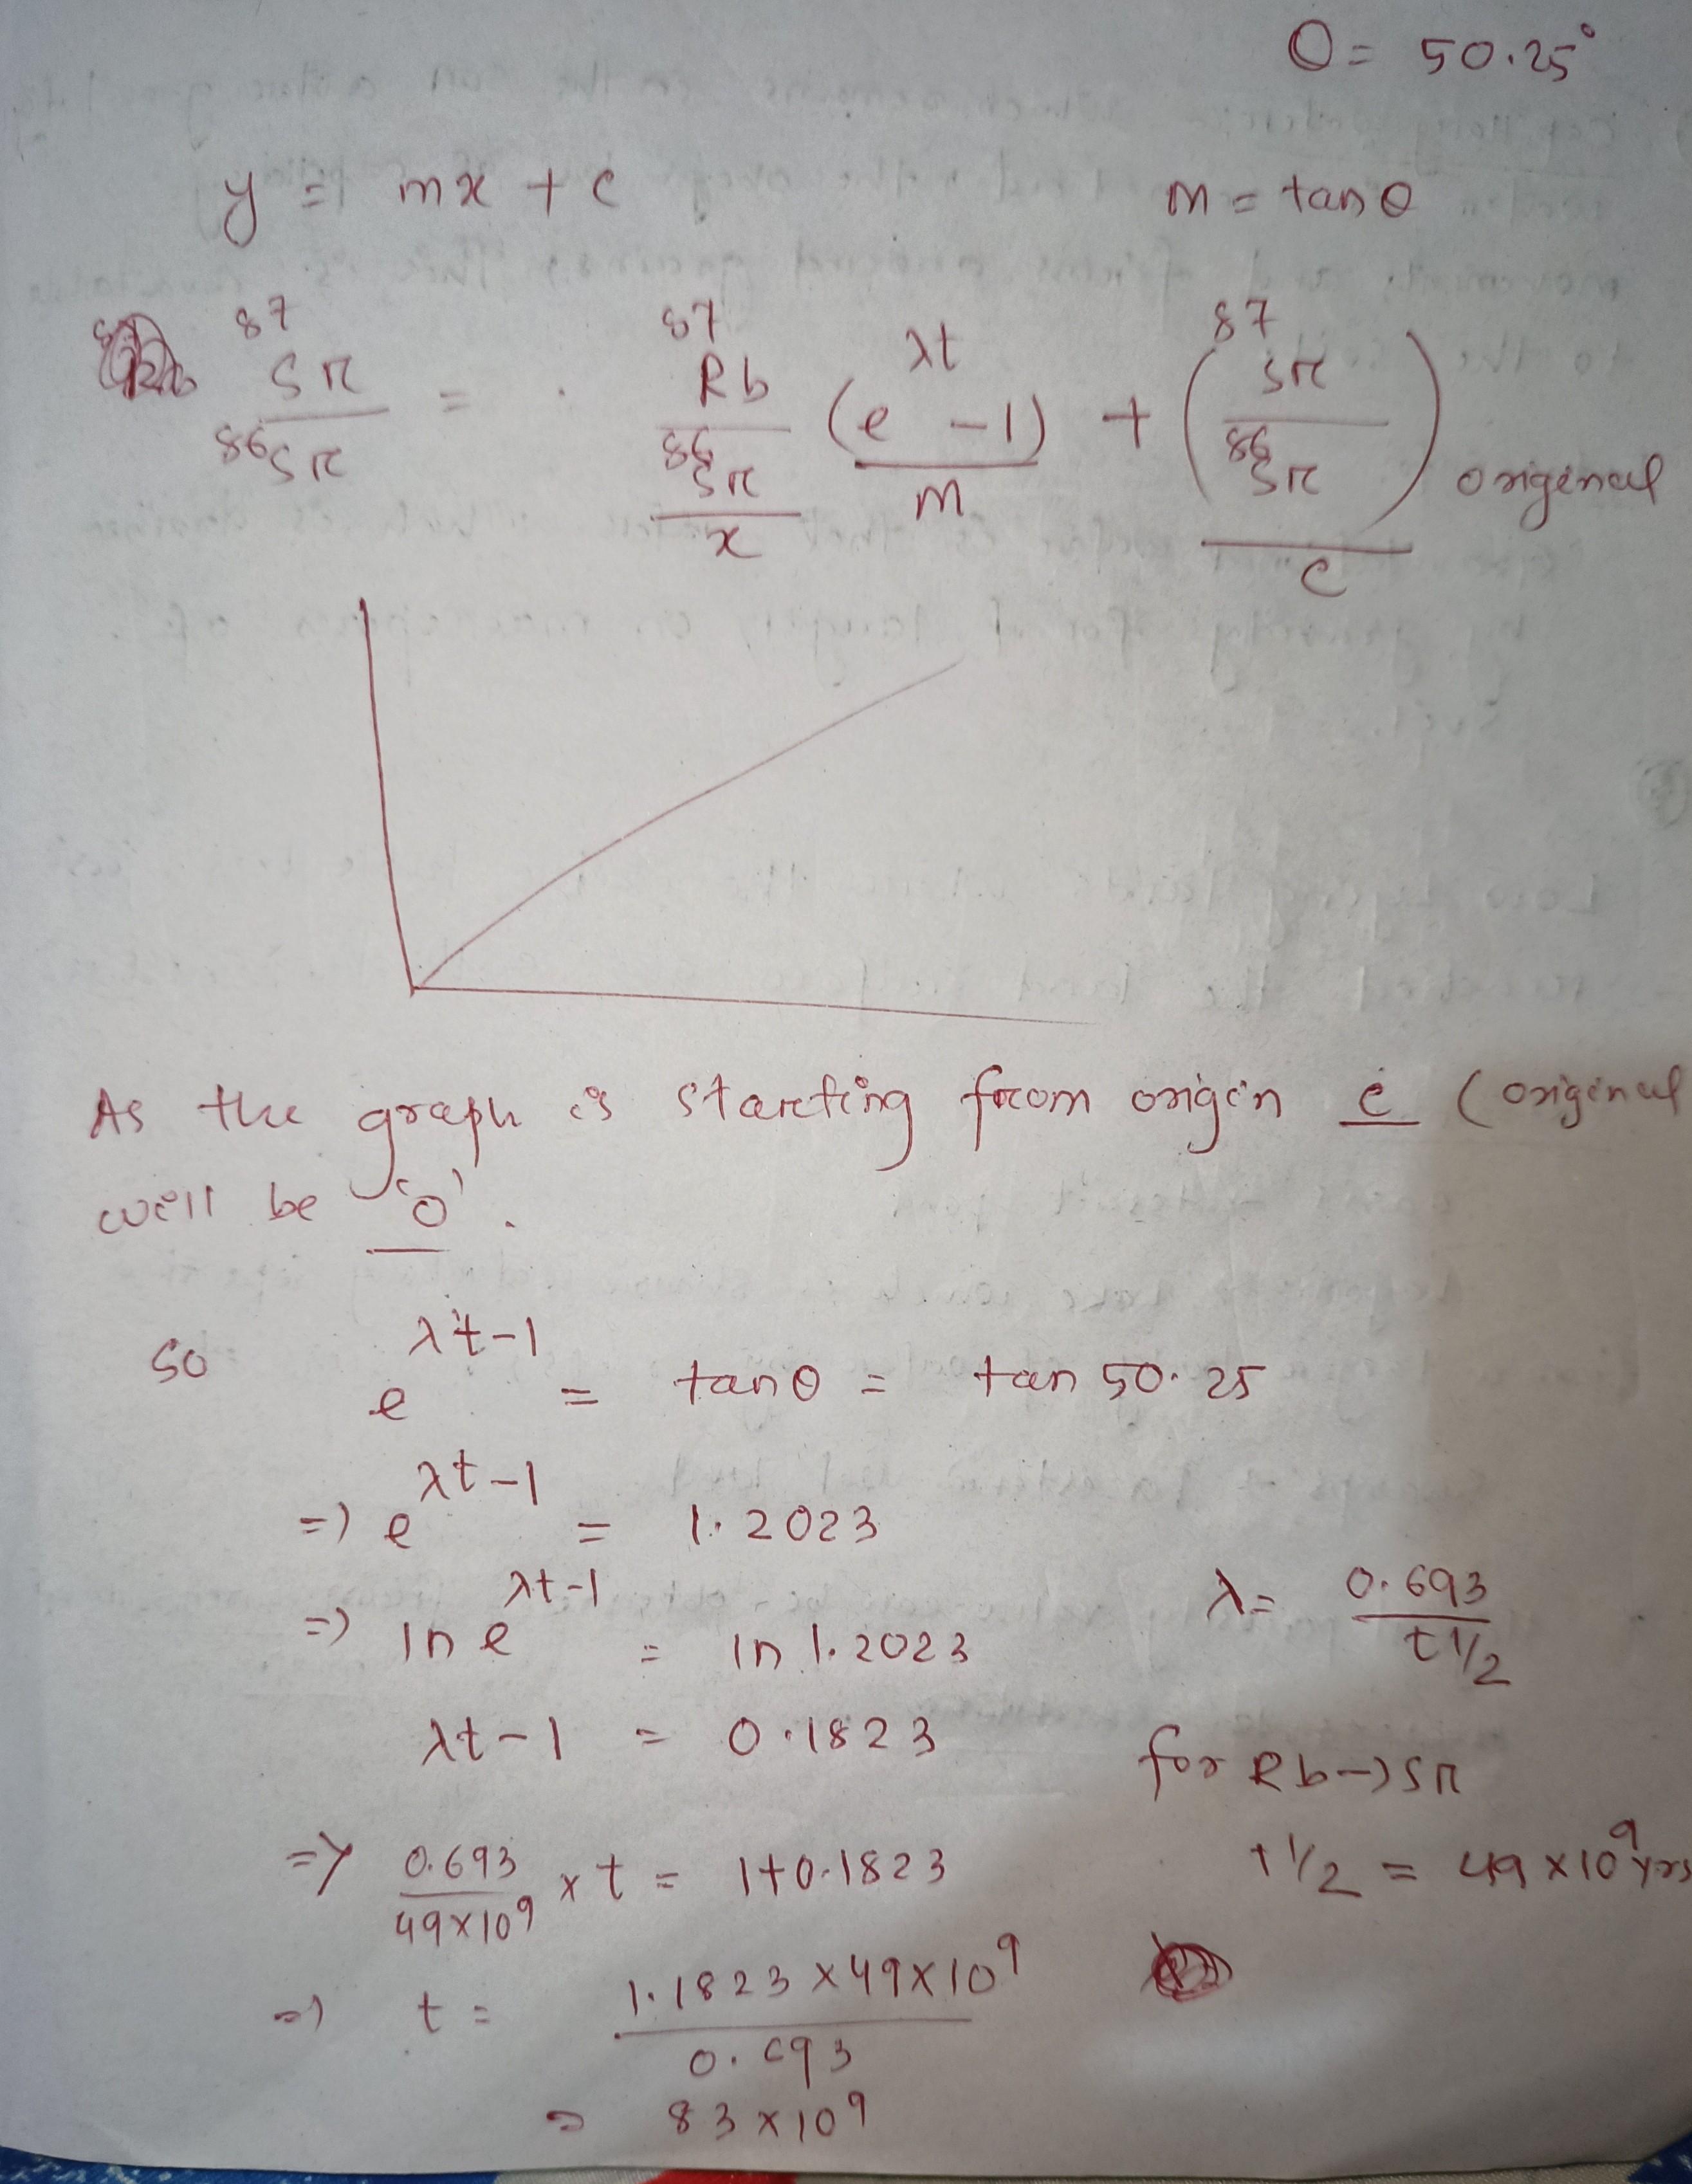 θ = 50.25°
y = mx + c    m = tan θ
⁸⁷Sr/⁸⁶Sr = ⁸⁷Rb/⁸⁶Sr (e^λt − 1) + (⁸⁷Sr/⁸⁶Sr) original
x    m    c
As the graph is starting from origin c (original
will be '0'.
So e^λt−1 = tan θ = tan 50.25
=> e^λt−1 = 1.2023
=> ln e^λt−1 = ln 1.2023    λ = 0.693/t1/2
λt−1 = 0.1823    for Rb→Sr
=> 0.693/49×10⁹ × t = 1+0.1823    t1/2 = 49×10⁹ yrs
=> t = 1.1823×49×10⁹/0.693
= 83×10⁹